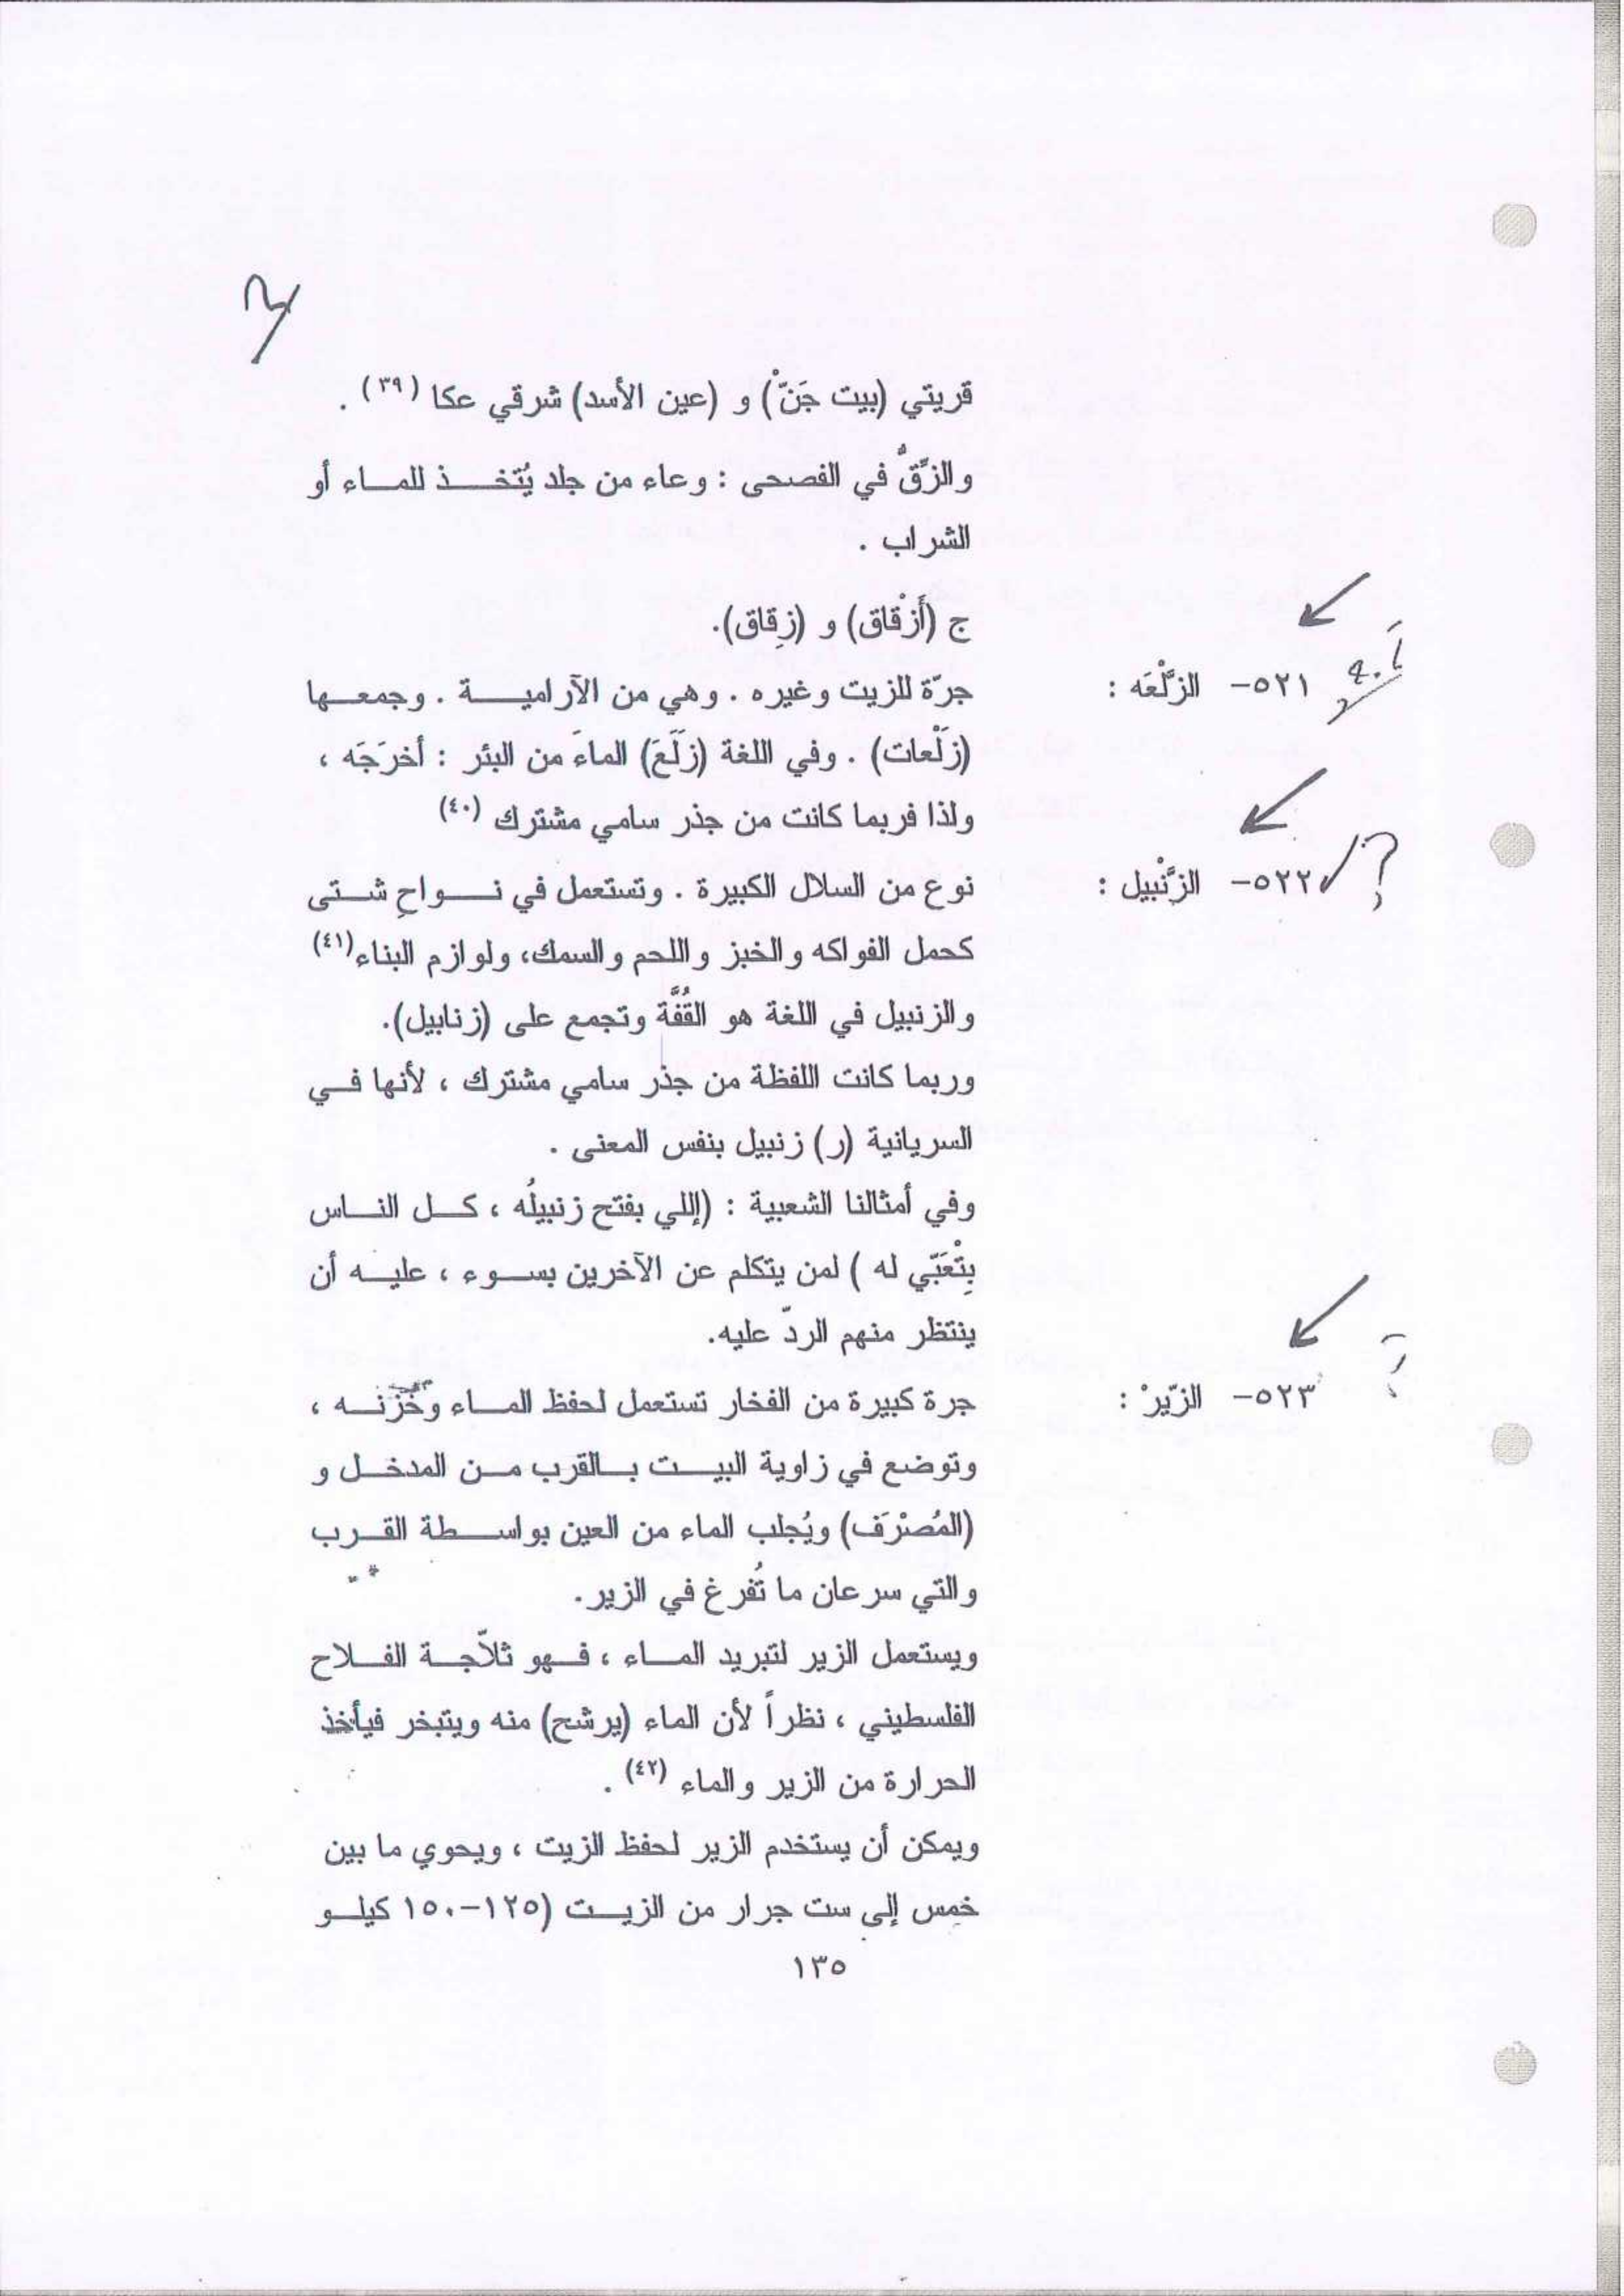 قريتي (بيت جَنّْ) و (عين الأسد) شرقي عكا (٣٩) .
والزِّقُّ في الفصحى : وعاء من جلد يُتخذ للماء أو
الشراب .
ج (أَزْقاق) و (زِقاق).
٥٢١- الزَّلْعَه : جرّة للزيت وغيره . وهي من الآرامية . وجمعها
(زَلْعات) . وفي اللغة (زَلَعَ) الماءَ من البئر : أخرَجَه ،
ولذا فربما كانت من جذر سامي مشترك (٤٠)
٥٢٢- الزَّنْبيل : نوع من السلال الكبيرة . وتستعمل في نواحِ شتى
كحمل الفواكه والخبز واللحم والسمك، ولوازم البناء(٤١)
والزنبيل في اللغة هو القُفَّة وتجمع على (زنابيل).
وربما كانت اللفظة من جذر سامي مشترك ، لأنها في
السريانية (ر) زنبيل بنفس المعنى .
وفي أمثالنا الشعبية : (إللي بفتح زنبيلُه ، كل الناس
بِتْعَبّي له ) لمن يتكلم عن الآخرين بسوء ، عليه أن
ينتظر منهم الردّ عليه.
٥٢٣- الزّيرْ : جرة كبيرة من الفخار تستعمل لحفظ الماء وخَزْنه ،
وتوضع في زاوية البيت بالقرب من المدخل و
(المُصْرَف) ويُجلب الماء من العين بواسطة القرب
والتي سرعان ما تُفرغ في الزير.
ويستعمل الزير لتبريد الماء ، فهو ثلاّجة الفلاح
الفلسطيني ، نظراً لأن الماء (يرشح) منه ويتبخر فيأخذ
الحرارة من الزير والماء (٤٢) .
ويمكن أن يستخدم الزير لحفظ الزيت ، ويحوي ما بين
خمس إلى ست جرار من الزيت (١٢٥-١٥٠ كيلو
١٣٥